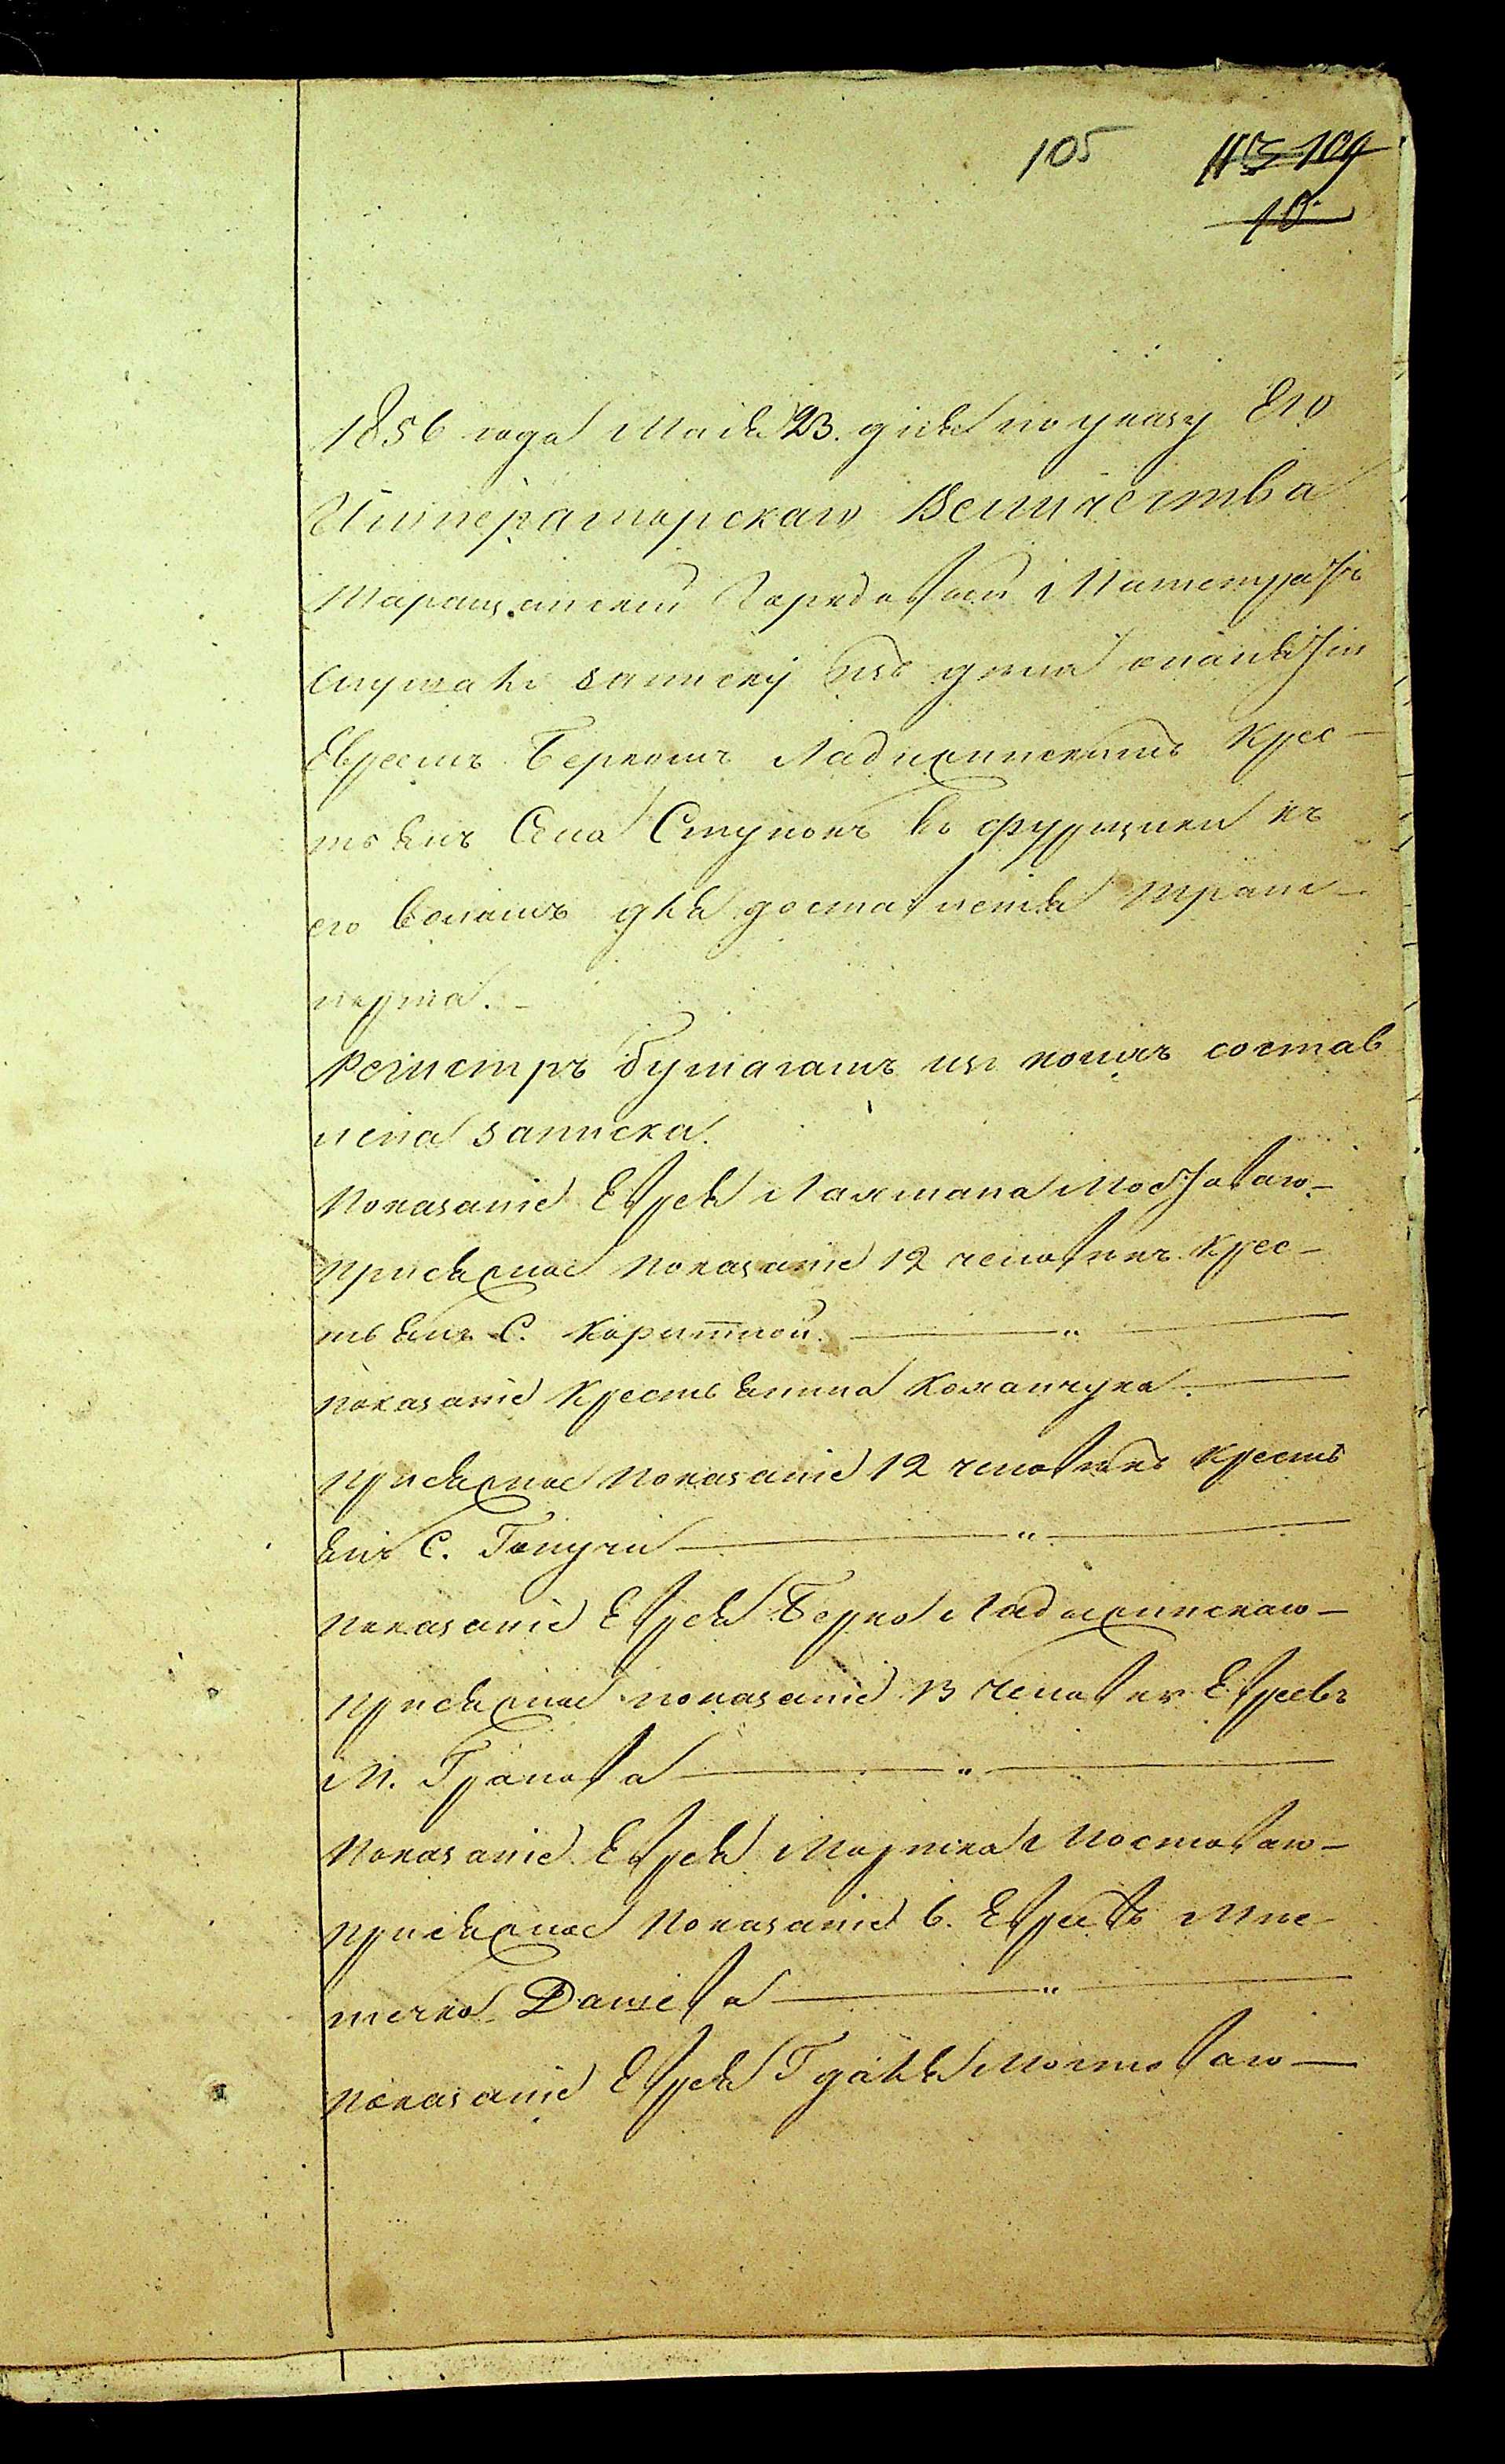 105 113 109
10
1856 года Мая 23. дня по указу Его
Императорскаго Величества
Таращанский Городовой Магистратъ
слушалъ записку изъ дела о нанятіи
Евреемъ Беркомъ Ладыжинскимъ Крес-
тьянъ Села Ступокъ въ фурщики къ
его воламъ для доставленія транс-
порта.-
Регистръ бумагамъ изъ коихъ состав
лена записка.
Показаніе Еврея Мостоваго-
Присяжное показаніе 12 человекъ Крес-
тьянъ С. Коритной. — " —
показаніе Крестьянина —
присяжное показаніе 12 человекъ Кресть
янъ С. — " —
показаніе Еврея Берка Ладыжинскаго-
присяжное показаніе 13 человек Евреевъ
М. Гранова — " —
Показаніе Еврея Мошка Мостоваго-
присяжное показаніе 6. Евреевъ Мес-
течка Дашева — " —
показаніе Еврея Гдаля Мостоваго —